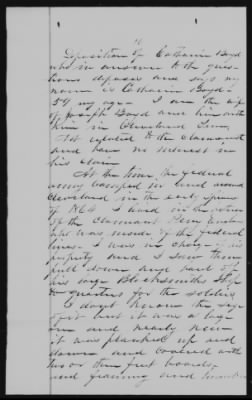 Deposition of Catharin Boyd
who in answer to the questions
deposes and says my
name is Catharin Boyd
59 my age I am the wife
of Joseph Boyd and live with
him in Cleveland Tenn
Not related to the claimant
and have no interest in
his claim
At the time the federal
army camped in and around
Cleveland in the early Spring
of 1864 I lived in the
of the claimant
was inside of the federal
lines I was in charge of his
property and I saw them
pull down and haul off
his large Blacksmith Shop
for quarters for the soldiers
I dont know the size
of it but it was a large
one and nearly new
it was planked up and
down and covered with
two or three feet boards
and framing and